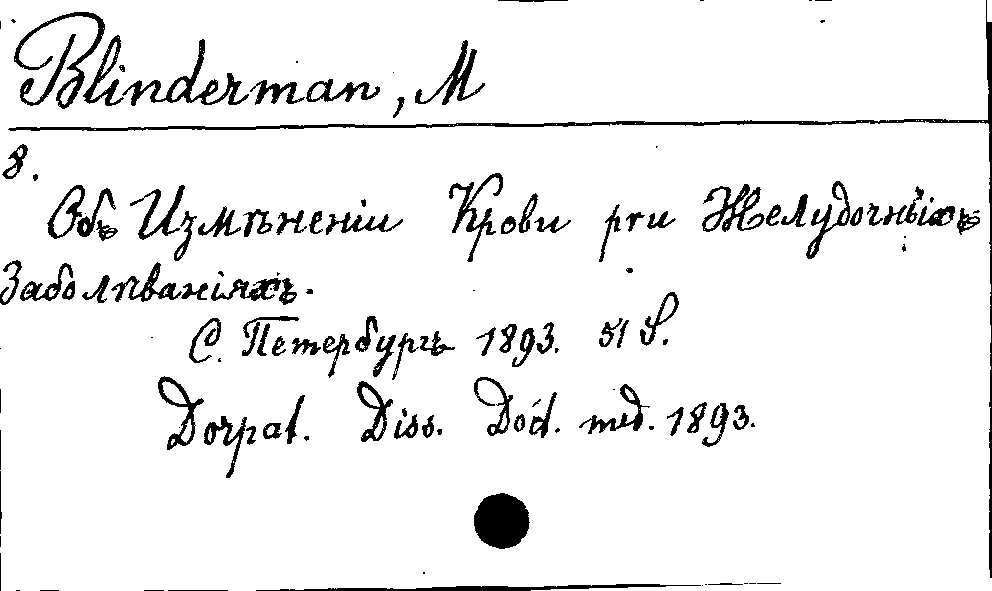 Blinderman, M
8.
Объ Измѣненіи Крови при Желудочныхъ
Заболѣваніяхъ.
С. Петербургъ 1893. 51 S.
Dorpat. Diss. Doct. med. 1893.